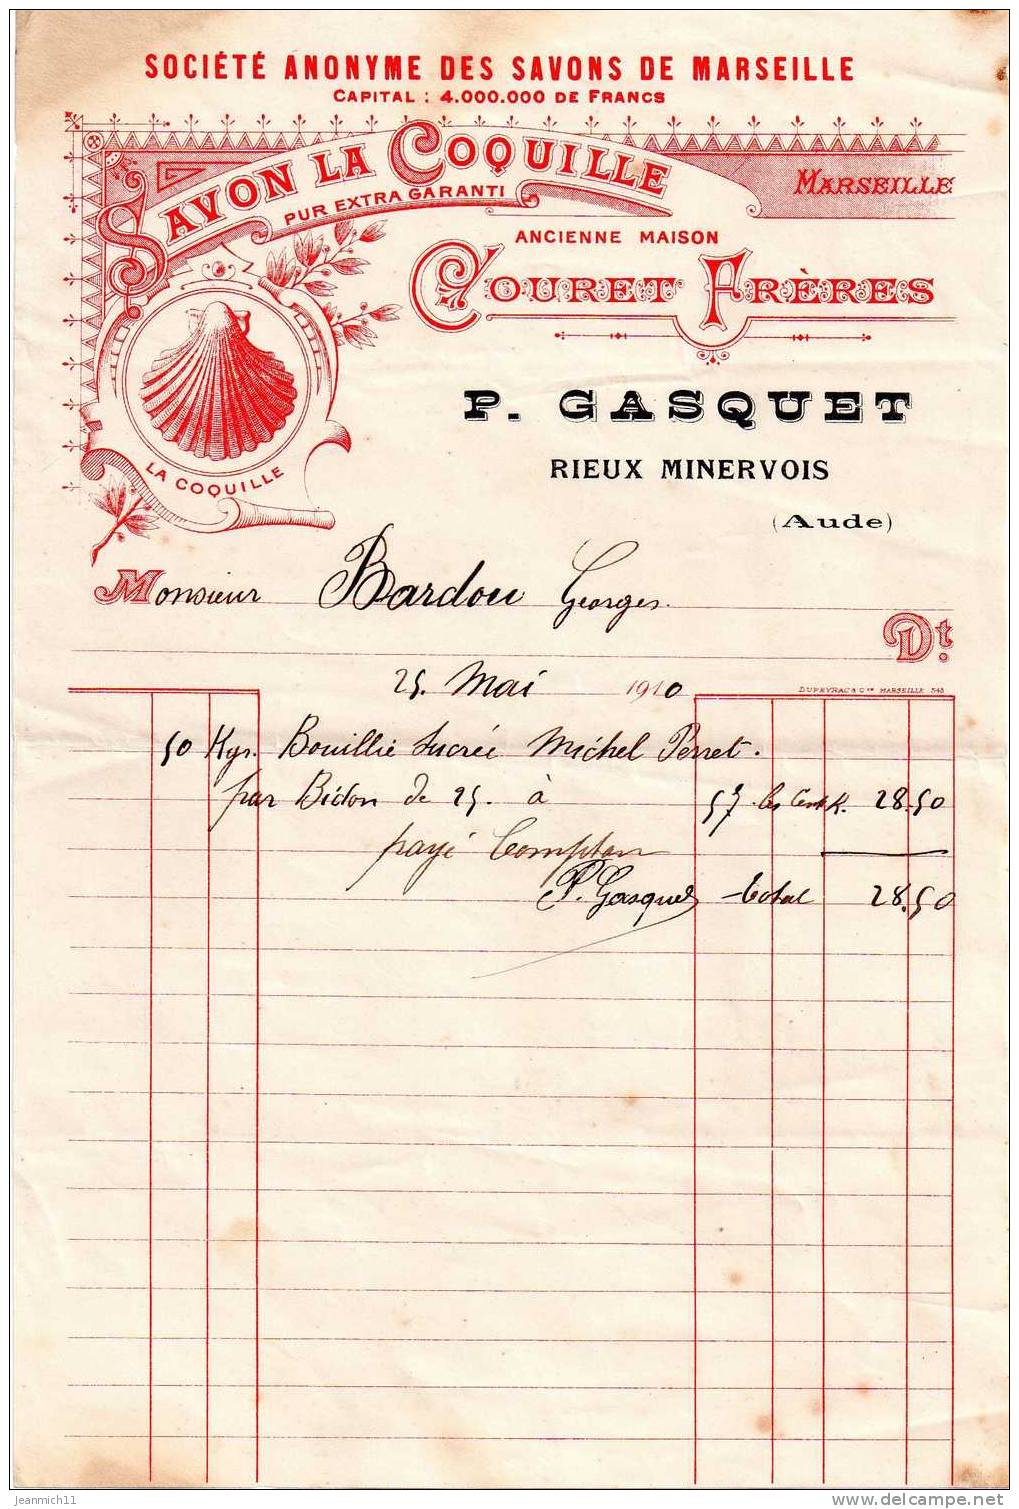 SOCIÉTÉ ANONYME DES SAVONS DE MARSEILLE
CAPITAL : 4.000.000 DE FRANCS
SAVON LA COQUILLE
PUR EXTRA GARANTI
MARSEILLE
ANCIENNE MAISON
COURET FRÈRES
LA COQUILLE
P. GASQUET
RIEUX MINERVOIS
(Aude)
Monsieur Bardou Georges.
Dt.
25. Mai 1910
DUPEYRAC & Cie MARSEILLE 545
50 Kgs. Bouillie Sucrée Michel Perret.
par Bidon de 25. à 57 les Cent K. 28.50
payé Comptan
P. Gasquet total 28.50
jeanmich11
www.delcampe.net